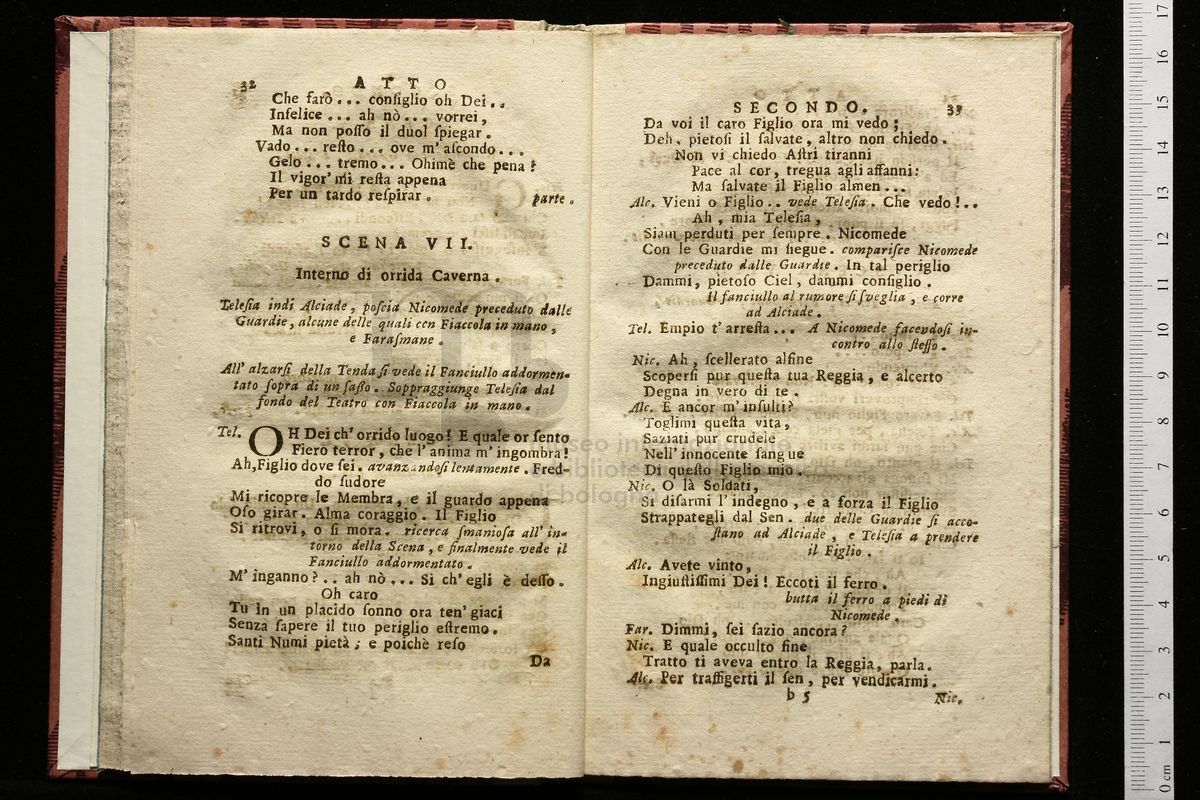 32 ATTO
Che farò... conſiglio oh Dei..
Infelice... ah nò... vorrei,
Ma non poſſo il duol ſpiegar.
Vado... reſto... ove m' aſcondo...
Gelo... tremo... Ohimè che pena!
Il vigor' mi reſta appena
Per un tardo reſpirar. parte.
SCENA VII.
Interno di orrida Caverna.
Teleſia indi Alciade, poſcia Nicomede preceduto dalle
Guardie, alcune delle quali con Fiaccola in mano,
e Faraſmane.
All' alzarſi della Tenda ſi vede il Fanciullo addormen-
tato ſopra di un ſaſſo. Soppraggiunge Teleſia dal
fondo del Teatro con Fiaccola in mano.
Tel. OH Dei ch' orrido luogo! E quale or ſento
Fiero terror, che l' anima m' ingombra!
Ah, Figlio dove ſei. avanzandoſi lentamente. Fred-
do ſudore
Mi ricopre le Membra, e il guardo appena
Oſo girar. Alma coraggio. Il Figlio
Si ritrovi, o ſi mora. ricerca ſmanioſa all' in-
torno della Scena, e finalmente vede il
Fanciullo addormentato.
M' inganno?.. ah nò... Si ch' egli è deſſo.
Oh caro
Tu in un placido ſonno ora ten' giaci
Senza ſapere il tuo periglio eſtremo.
Santi Numi pietà; e poichè reſo
Da
SECONDO. 33
Da voi il caro Figlio ora mi vedo;
Deh, pietoſi il ſalvate, altro non chiedo.
Non vi chiedo Aſtri tiranni
Pace al cor, tregua agli affanni:
Ma ſalvate il Figlio almen...
Alc. Vieni o Figlio.. vede Teleſia. Che vedo!..
Ah, mia Teleſia,
Siam perduti per ſempre. Nicomede
Con le Guardie mi ſiegue. compariſce Nicomede
preceduto dalle Guardie. In tal periglio
Dammi, pietoſo Ciel, dammi conſiglio.
Il fanciullo al rumore ſi ſveglia, e corre
ad Alciade.
Tel. Empio t' arreſta... A Nicomede facendoſi in-
contro allo ſteſſo.
Nic. Ah, ſcellerato alfine
Scoperſi pur queſta tua Reggia, e alcerto
Degna in vero di te.
Alc. E ancor m' inſulti?
Toglimi queſta vita,
Saziati pur crudele
Nell' innocente ſangue
Di queſto Figlio mio.
Nic. O là Soldati,
Si diſarmi l' indegno, e a forza il Figlio
Strappategli dal Sen. due delle Guardie ſi acco-
ſtano ad Alciade, e Teleſia a prendere
il Figlio.
Alc. Avete vinto,
Ingiuſtiſſimi Dei! Eccoti il ferro.
butta il ferro a piedi di
Nicomede.
Far. Dimmi, ſei ſazio ancora?
Nic. E quale occulto fine
Tratto ti aveva entro la Reggia, parla.
Alc. Per traffigerti il ſen, per vendicarmi.
b 5 Nic.